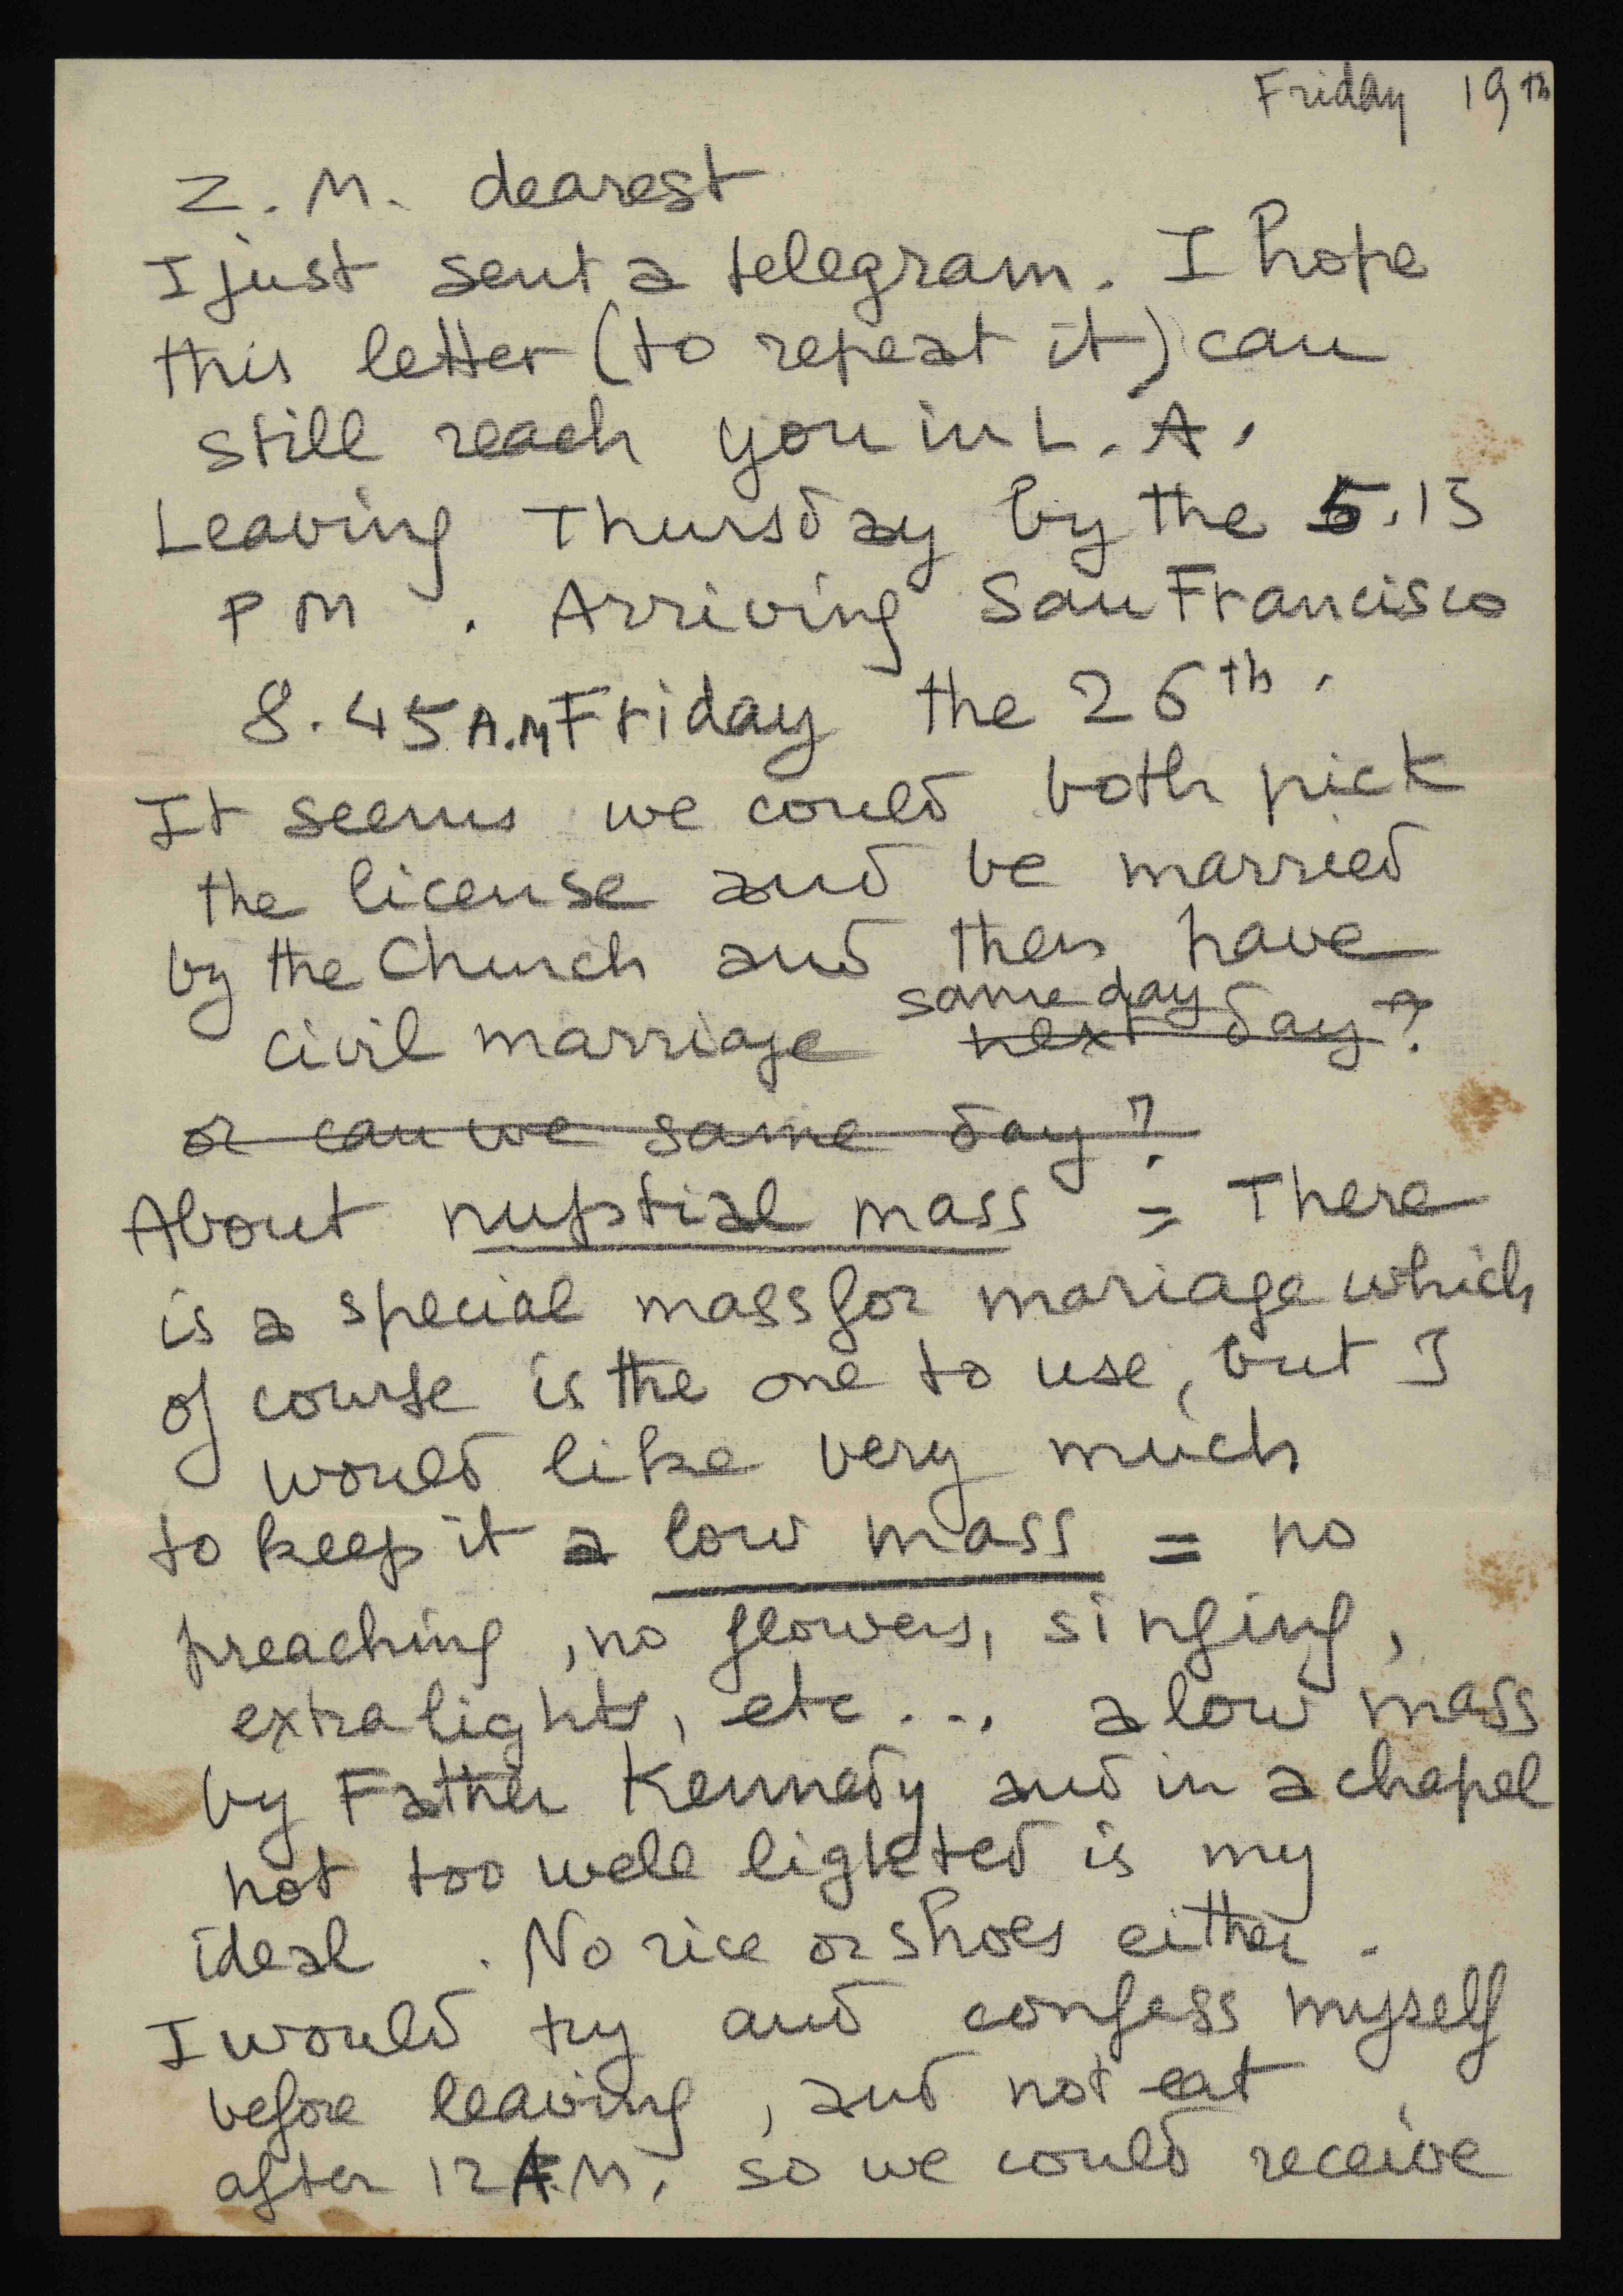 Friday 19th
Z. M. dearest
I just sent a telegram. I hope
this letter (to repeat it) can
still reach you in L. A.
Leaving Thursday by the 5.15
P M. Arriving San Francisco
8.45 A.M Friday the 26th.
It seems we could both pick
the license and be married
by the Church and then have
same day
civil marriage next day?
or can we same day?
About nuptial mass = There
is a special mass for mariage which
of course is the one to use, but I
would like very much
to keep it a low mass = no
preaching, no flowers, singing,
extra lights, etc... a low mass
by Father Kennedy and in a chapel
not too well lighted is my
ideal. No rice or shoes either.
I would try and confess myself
before leaving, and not eat
after 12 A.M, so we could receive